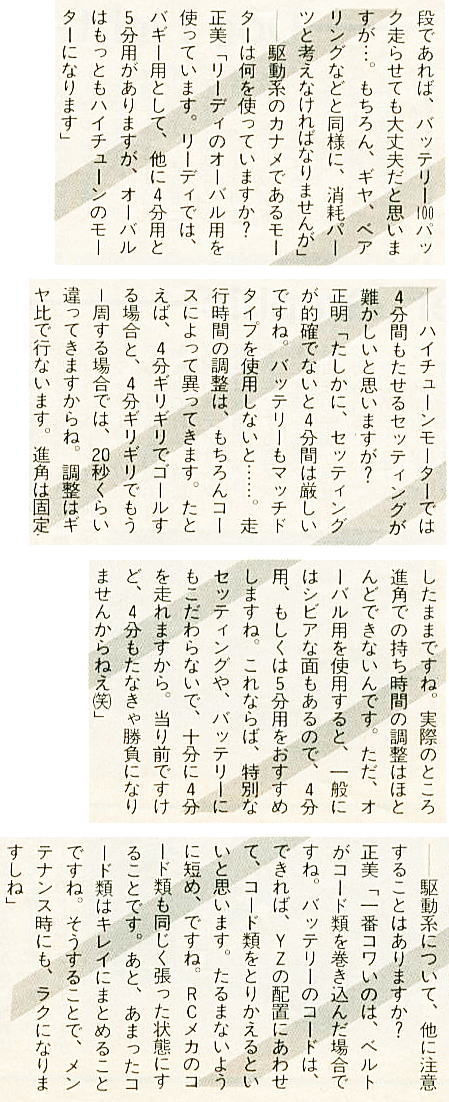 段であれば、バッテリー100パッ
ク走らせても大丈夫だと思いま
すが…。もちろん、ギヤ、ベア
リングなどと同様に、消耗パー
ツと考えなければなりませんが」
──駆動系のカナメであるモー
ターは何を使っていますか?
正美「リーディのオーバル用を
使っています。リーディでは、
バギー用として、他に4分用と
5分用がありますが、オーバル
はもっともハイチューンのモー
ターになります」
──ハイチューンモーターでは
4分間もたせるセッティングが
難かしいと思いますが?
正明「たしかに、セッティング
が的確でないと4分間は厳しい
ですね。バッテリーもマッチド
タイプを使用しないと……。走
行時間の調整は、もちろんコー
スによって異ってきます。たと
えば、4分ギリギリでゴールす
る場合と、4分ギリギリでもう
一周する場合では、20秒くらい
違ってきますからね。調整はギ
ヤ比で行ないます。進角は固定
したままですね。実際のところ
進角での持ち時間の調整はほと
んどできないんです。ただ、オ
ーバル用を使用すると、一般に
はシビアな面もあるので、4分
用、もしくは5分用をおすすめ
しますね。これならば、特別な
セッティングや、バッテリーに
もこだわらないで、十分に4分
を走れますから。当り前ですけ
ど、4分もたなきゃ勝負になり
ませんからねえ㊤(笑)」
──駆動系について、他に注意
することはありますか?
正美「一番コワいのは、ベルト
がコード類を巻き込んだ場合で
すね。バッテリーのコードは、
できれば、YZの配置にあわせ
て、コード類をとりかえるとい
いと思います。たるまないよう
に短め、ですね。RCメカのコ
ード類も同じく張った状態にす
ることです。あと、あまったコ
ード類はキレイにまとめること
ですね。そうすることで、メン
テナンス時にも、ラクになりま
すしね」